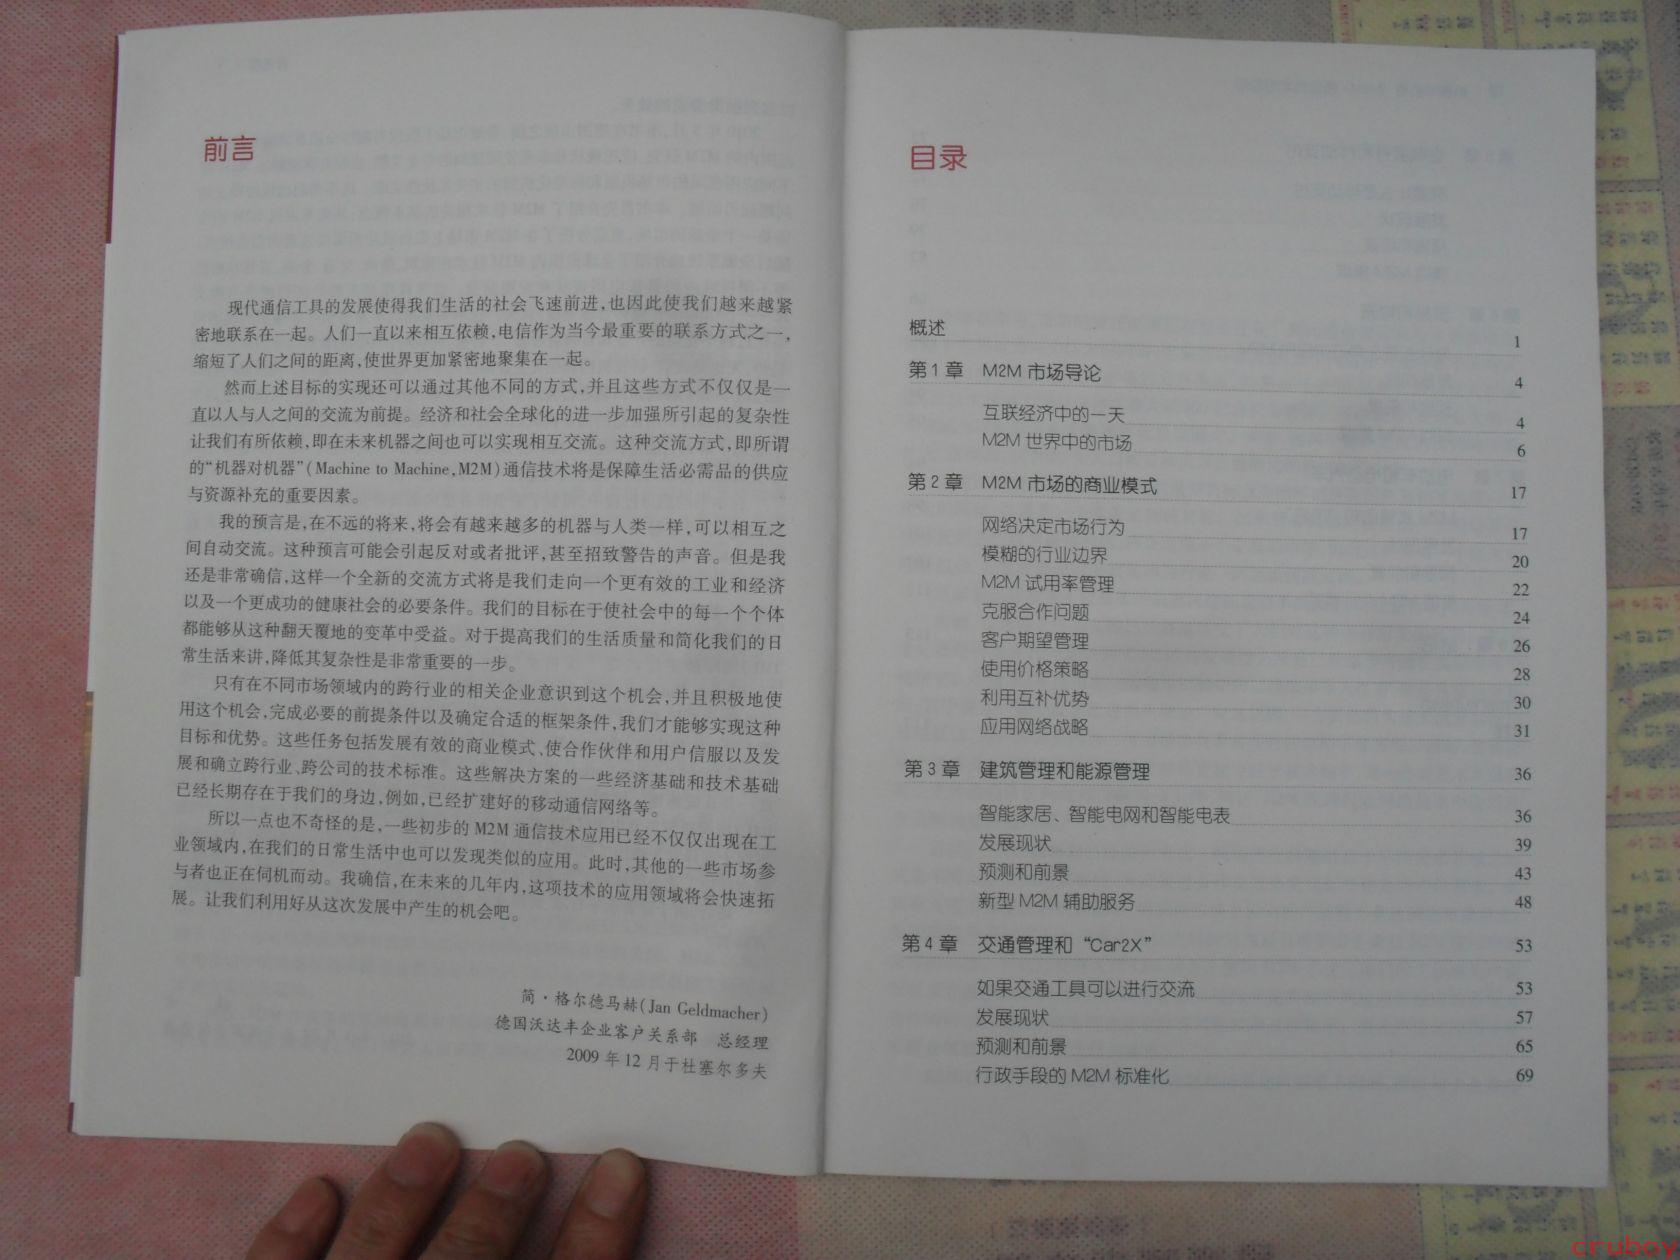 前言
现代通信工具的发展使得我们生活的社会飞速前进,也因此使我们越来越紧
密地联系在一起。人们一直以来相互依赖,电信作为当今最重要的联系方式之一,
缩短了人们之间的距离,使世界更加紧密地聚集在一起。
然而上述目标的实现还可以通过其他不同的方式,并且这些方式不仅仅是一
直以人与人之间的交流为前提。经济和社会全球化的进一步加强所引起的复杂性
让我们有所依赖,即在未来机器之间也可以实现相互交流。这种交流方式,即所谓
的“机器对机器”(Machine to Machine,M2M)通信技术将是保障生活必需品的供应
与资源补充的重要因素。
我的预言是,在不远的将来,将会有越来越多的机器与人类一样,可以相互之
间自动交流。这种预言可能会引起反对或者批评,甚至招致警告的声音。但是我
还是非常确信,这样一个全新的交流方式将是我们走向一个更有效的工业和经济
以及一个更成功的健康社会的必要条件。我们的目标在于使社会中的每一个个体
都能够从这种翻天覆地的变革中受益。对于提高我们的生活质量和简化我们的日
常生活来讲,降低其复杂性是非常重要的一步。
只有在不同市场领域内的跨行业的相关企业意识到这个机会,并且积极地使
用这个机会,完成必要的前提条件以及确定合适的框架条件,我们才能够实现这种
目标和优势。这些任务包括发展有效的商业模式、使合作伙伴和用户信服以及发
展和确立跨行业、跨公司的技术标准。这些解决方案的一些经济基础和技术基础
已经长期存在于我们的身边,例如,已经扩建好的移动通信网络等。
所以一点也不奇怪的是,一些初步的 M2M 通信技术应用已经不仅仅出现在工
业领域内,在我们的日常生活中也可以发现类似的应用。此时,其他的一些市场参
与者也正在伺机而动。我确信,在未来的几年内,这项技术的应用领域将会快速拓
展。让我们利用好从这次发展中产生的机会吧。
简·格尔德马赫(Jan Geldmacher)
德国沃达丰企业客户关系部 总经理
2009 年 12 月于杜塞尔多夫
目录
概述 1
第 1 章 M2M 市场导论 4
互联经济中的一天 4
M2M 世界中的市场 6
第 2 章 M2M 市场的商业模式 17
网络决定市场行为 17
模糊的行业边界 20
M2M 试用率管理 22
克服合作问题 24
客户期望管理 26
使用价格策略 28
利用互补优势 30
应用网络战略 31
第 3 章 建筑管理和能源管理 36
智能家居、智能电网和智能电表 36
发展现状 39
预测和前景 43
新型 M2M 辅助服务 48
第 4 章 交通管理和“Car2X” 53
如果交通工具可以进行交流 53
发展现状 57
预测和前景 65
行政手段的 M2M 标准化 69
cruboy